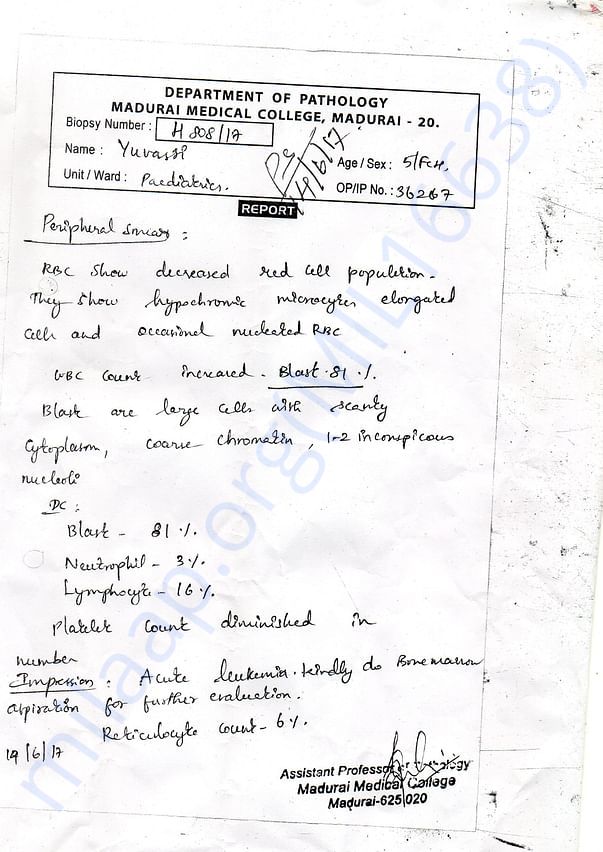 DEPARTMENT OF PATHOLOGY
MADURAI MEDICAL COLLEGE, MADURAI - 20.
Biopsy Number : H 808/17
Name : Yuvassi Age / Sex : 5/Fch,
Unit / Ward : Paediatrics. OP/IP No. : 36267
REPORT
Peripheral smear :
RBC Show decreased red cell population.
They show hypochromic microcytes elongated
cells and occasional nucleated RBC
WBC count increased. Blast - 81 %.
Blast are large cells with scanty
cytoplasm, coarse chromatin, 1-2 inconspicous
nucleoli
DC :
Blast - 81 %.
Neutrophil - 3 %.
Lymphocyte - 16 %.
Platelet count diminished in
number
Impression : Acute leukemia. Kindly do Bone marrow
aspiration for further evaluation.
Reticulocyte count - 6 %.
19/6/17
Assistant Professor of
Madurai Medical College
Madurai-625 020
milaap.org(MIL16638)